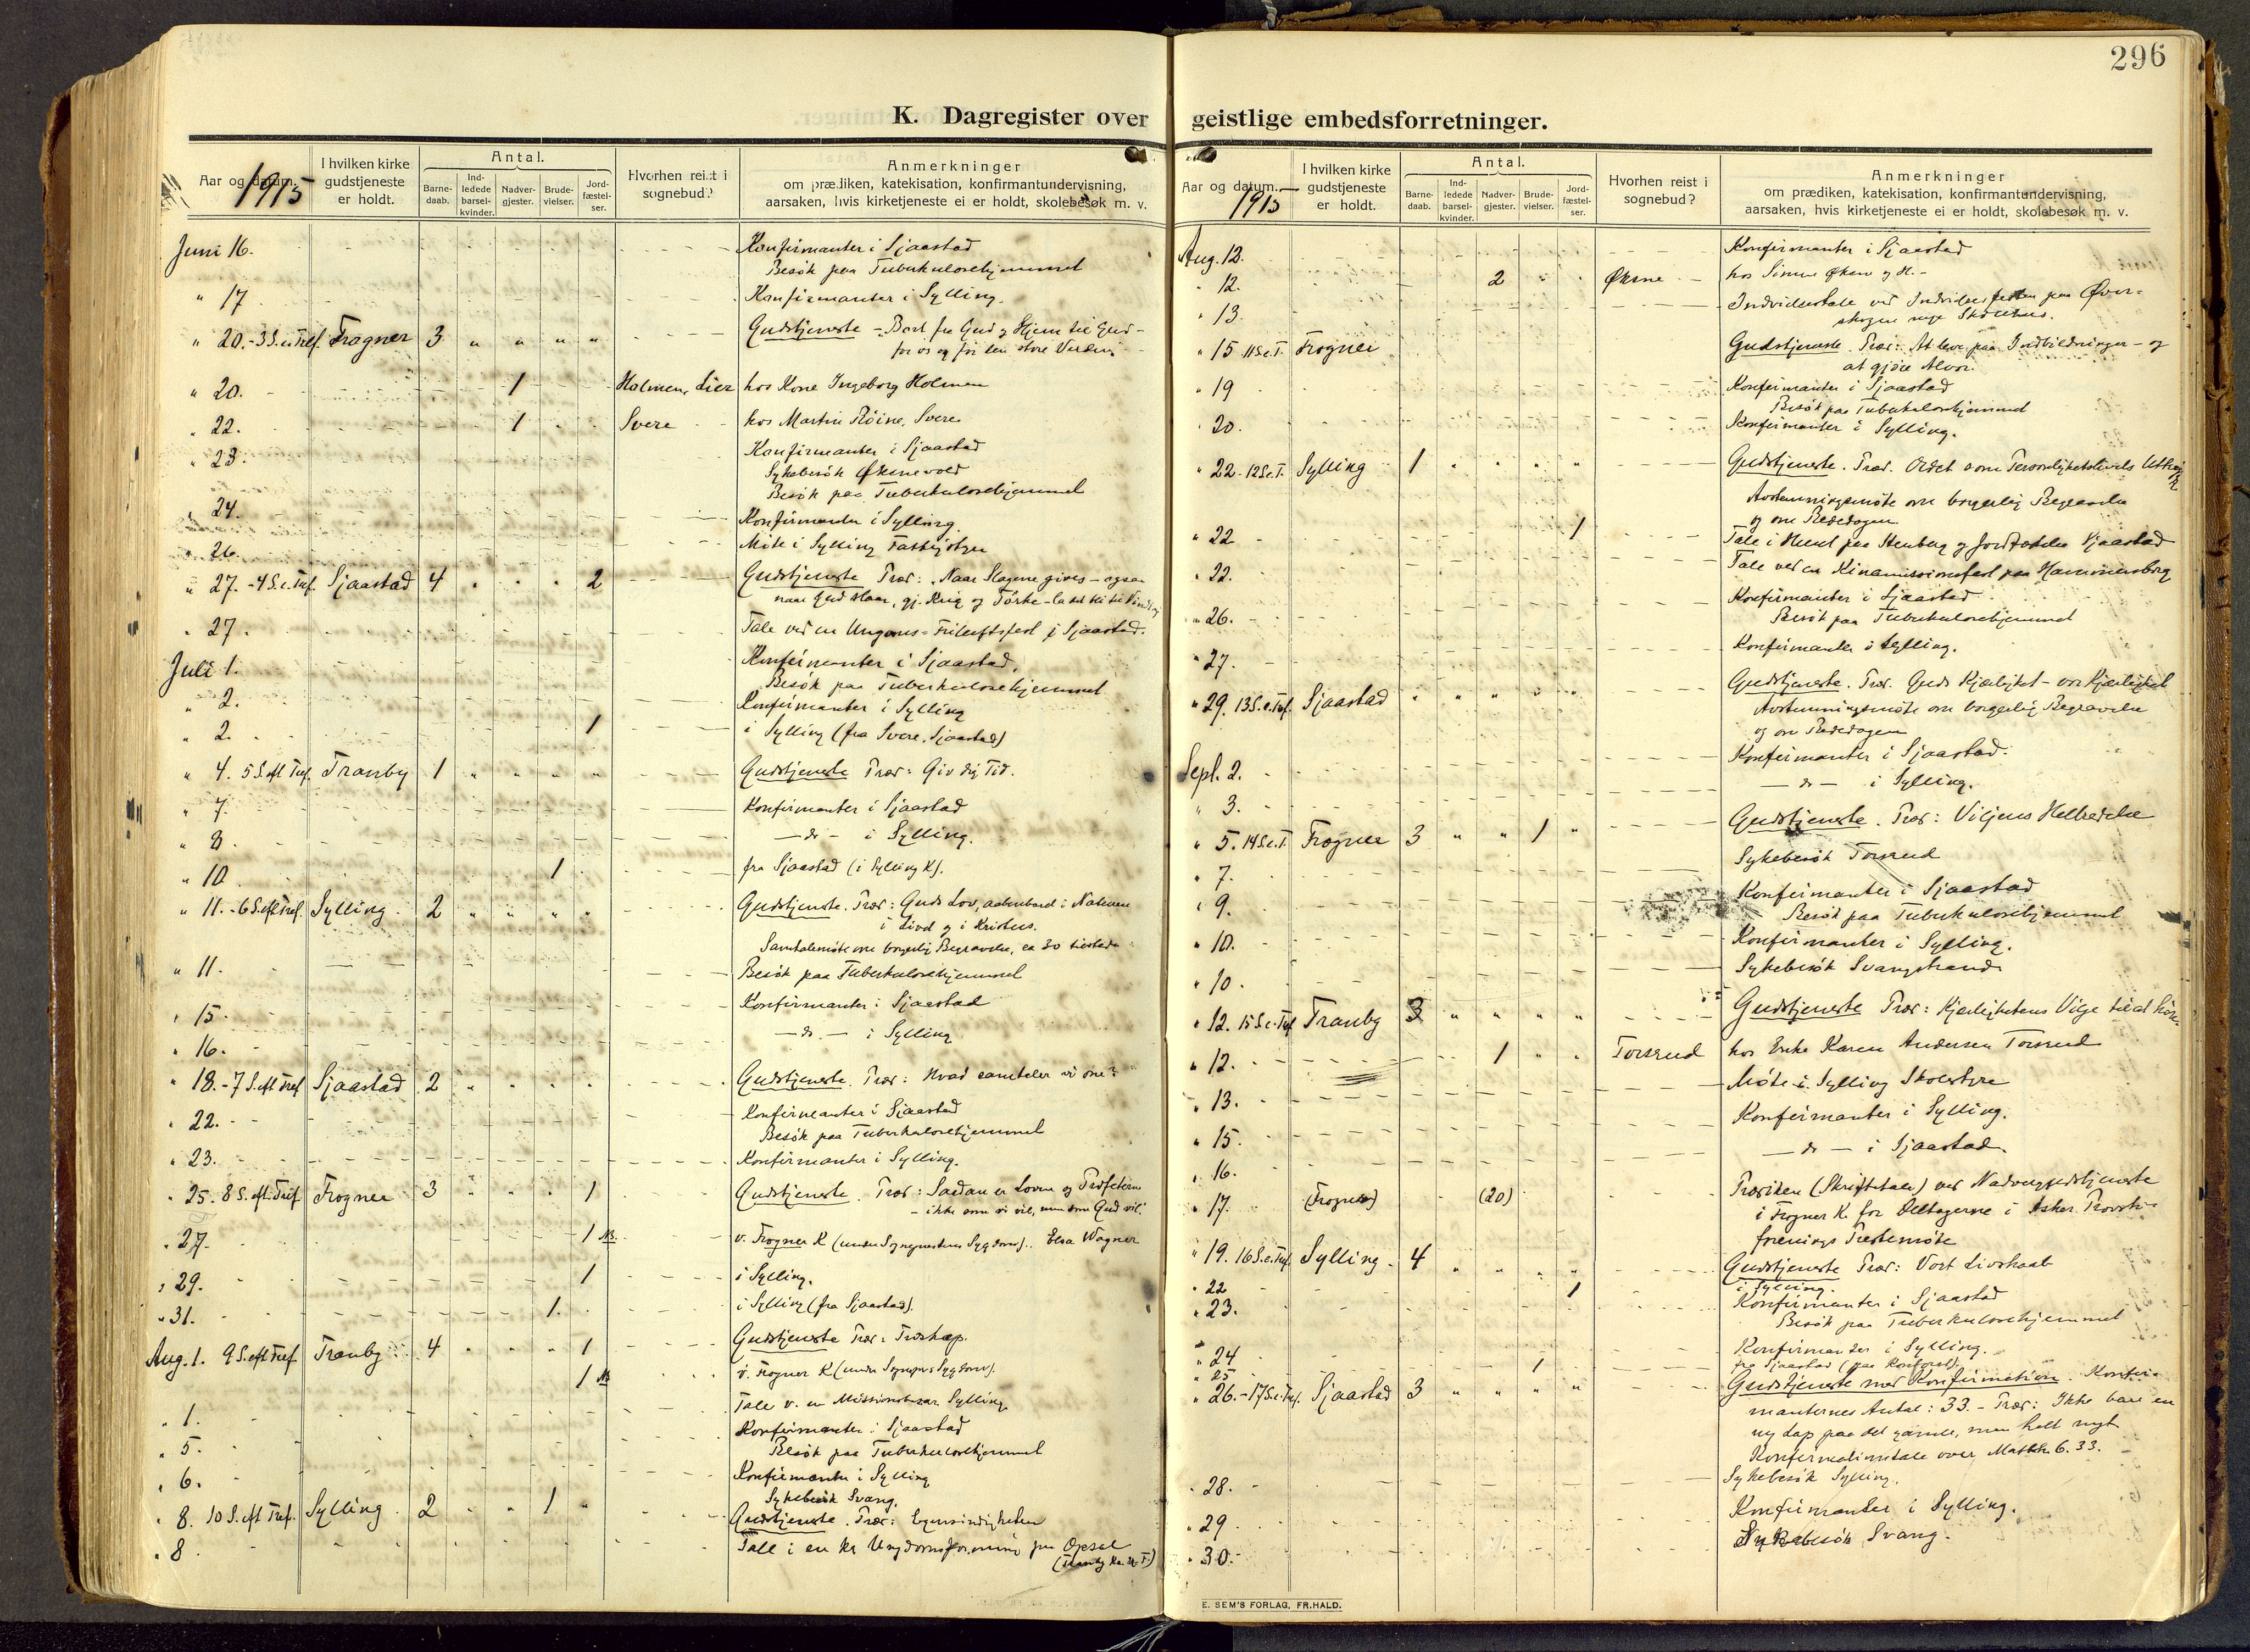 296
K. Dagregister over geistlige embedsforretninger.
Aar og datum. 1915
I hvilken kirke gudstjeneste er holdt.
Antal.
Barne-daab.
Ind-ledede barsel-kvinder.
Nadver-gjester.
Brude-vielser.
Jord-fæstel-ser.
Hvorhen reist i sognebud?
Anmerkninger
om prædiken, katekisation, konfirmantundervisning,
aarsaken, hvis kirketjeneste ei er holdt, skolebesøk m. v.
Juni 16. Konfirmanter i Sjaastad
Besök paa Tuberkulosehjemmet
" 17 Konfirmanter i Sylling.
" 20. - 3 S. e. Tref. Frogner 3 " " " " Gudstjeneste - Bort fra Gud og Hjem til Gud -
for os og for den store Verden
" 20. 1 Holmen, Lier hos Kone Ingeborg Holmen
" 22. 1 Svere hos Martin Röine, Svere
" 23. Konfirmanter i Sjaastad
Sykebesök Öksnevold
Besök paa Tuberkulosehjemmet
" 24. Konfirmanter i Sylling
" 26. Möte i Sylling Fattigstyre
" 27. - 4 S. e. Tref. Sjaastad 4 " " " 2 Gudstjeneste Præd: Naar Slagene gives - ogsaa
naar Gud slaar, gj. Krig og Törke - la det bli til
" 27. Tale ved en Ungdoms-Friluftsfest i Sjaastad.
Juli 1. Konfirmanter i Sjaastad.
Besök paa Tuberkulosehjemmet
" 2. Konfirmanter i Sylling
" 2. 1 i Sylling (fra Svere, Sjaastad)
" 4. 5 S. eft Tref. Tranby 1 " " " " Gudstjeneste Præd: Giv dig Tid.
" 7. Konfirmanter i Sjaastad
" 8. - do - i Sylling.
" 10. 1 fra Sjaastad (i Sylling K).
" 11. - 6 S. eft Tref. Sylling. 2 " " " " Gudstjeneste. Præd: Guds Lov, aabenbaret i Naturen
i Livet og i Kristus.
Samtalemöte om borgerlig Begravelse, ca 30 tilstede
" 11. Besök paa Tuberkulosehjemmet
" 15. Konfirmanter i Sjaastad
" 16. - do. - i Sylling
" 18. - 7 S. eft Tref Sjaastad 2 " " " " Gudstjeneste. Præd: Hvad samtaler vi om?
" 22. Konfirmanter i Sjaastad
Besök paa Tuberkulosehjemmet
" 23. Konfirmanter i Sylling.
" 25. 8 S. eft. Tref. Frogner 3 " " " 1 Gudstjeneste. Præd: Saadan er Loven og Profeterne
- ikke som vi vil, men som Gud vil.
" 27. 1 NB. v. Frogner K (under Sogneprestens Sygdom).. Elsa Wagner
" 29. 1 i Sylling.
" 31. 1. i Sylling (fra Sjaastad).
Aug. 1. 9 S. eft Tref. Tranby 4 " " " 1 Gudstjeneste Præd: Troskap.
1 NB v. Frogner K (under Sognepr.s Sygdom).
" 1. Tale v. en Missionsbasar Sylling
" 5. Konfirmanter i Sjaastad
Besök paa Tuberkulosehjemmet
" 6. Konfirmanter i Sylling
Sykebesök Svang.
" 8. 10 S. eft Tref. Sylling. 2 " " 1 " Gudstjeneste. Præd: Egenrådigheten
" 8 Tale i en kr Ungdomsforening paa Opsal
Aar og datum. 1915
I hvilken kirke gudstjeneste er holdt.
Antal.
Barne-daab.
Ind-ledede barsel-kvinder.
Nadver-gjester.
Brude-vielser.
Jord-fæstel-ser.
Hvorhen reist i sognebud?
Anmerkninger
om prædiken, katekisation, konfirmantundervisning,
aarsaken, hvis kirketjeneste ei er holdt, skolebesøk m. v.
Aug. 12. Konfirmanter i Sjaastad
" 12. 2 " " Øksne hos Simen Øksne og H. -
" 13. Indvielsestale ved Indvielsesfesten paa Över-
skogen nye Skolehus.
" 15 11 S. e. T. Frogner Gudstjeneste. Præd: At leve paa Indbildninger - og
at gjöre Alvor.
" 19 Konfirmanter i Sjaastad
Besök paa Tuberkulosehjemmet
" 20. Konfirmanter i Sylling.
" 22 - 12 S. e. T. Sylling 1 " " " " Gudstjeneste. Præd. Ordet som Personlighetslivets
Avstemningsmöte om borgerlig Begravelse
og om Bededagen
" 22 1 Tale i Huset paa Stenberg og Jordfæstelse Sjaastad
" 22. Tale ved en Kinamissionsfest paa Hammersborg
" 26. Konfirmanter i Sjaastad
Besök paa Tuberkulosehjemmet
" 27. Konfirmanter i Sylling.
" 29. 13 S. e. Tref. Sjaastad " " " " " Gudstjeneste. Præd. Guds Kjærlighet - vor Kjærlighet
Avstemningsmöte om borgerlig Begravelse
og om Bededagen
Sept. 2. Konfirmanter i Sjaastad.
" 3. - do - i Sylling.
" 5. 14 S. e. T. Frogner 3 " " 1 " Gudstjeneste. Præd: Viljens Helbredelse
" 7. Sykebesök Torsrud
" 9. Konfirmanter i Sjaastad
Besök paa Tuberkulosehjemmet
" 10. Konfirmanter i Sylling.
" 10. Sykebesök Svangstrand
" 12. 15 S. e. Tref Tranby 3 " " " " Gudstjeneste Præd: Kjærlighetens Vilje til at
" 12. 1 " " Torsrud hos Enke Karen Andersen Torsrud
" 13. Möte i Sylling Skolestyre
" 15. Konfirmanter i Sylling.
" 16. - do - i Sjaastad.
" 17. (Frogner) (20) Prædiken (Skriftetale) ved Nadvergudstjeneste
i Frogner K. for Deltagerne i Asker Provsti-
forenings Prestemöte
" 19. 16 S. e. Tref. Sylling. 4 " " " " Gudstjeneste Præd: Vort Livshaab
" 22 1 i Sylling.
" 23. Konfirmanter i Sjaastad
Besök paa Tuberkulosehjemmet
" 24 Konfirmanter i Sylling.
" 25 1 fra Sjaastad
" 26. - 17 S. e. Tref. Sjaastad 3 " " " " Gudstjeneste med Konfirmation. Konfir-
manternes Antal: 33. - Præd: Ikke bare en
ny lap paa det gamle, men helt nyt
Konfirmationstale over Matth. 6. 33.
" 28. Sykebesök Sylling.
" 29 Konfirmanter i Sylling.
" 30. Sykebesök Svang.
E. SEM'S FORLAG, FR.HALD.